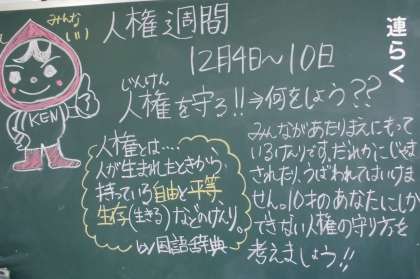 みんな
いい
人権週間
12月4日～10日
連らく
じんけん
人権を守ろ!!⇒何をしよう??
KEN
人権とは…
人が生まれたときから、
持っている自由と平等、
生存(生きる)などのけんり。
by国語辞典
みんながあたりまえにもって
いるけんりです。だれかにじゃま
されたり、うばわれてはいけま
せん。10才のあなたにしか
できない人権の守り方を
考えましょう!!